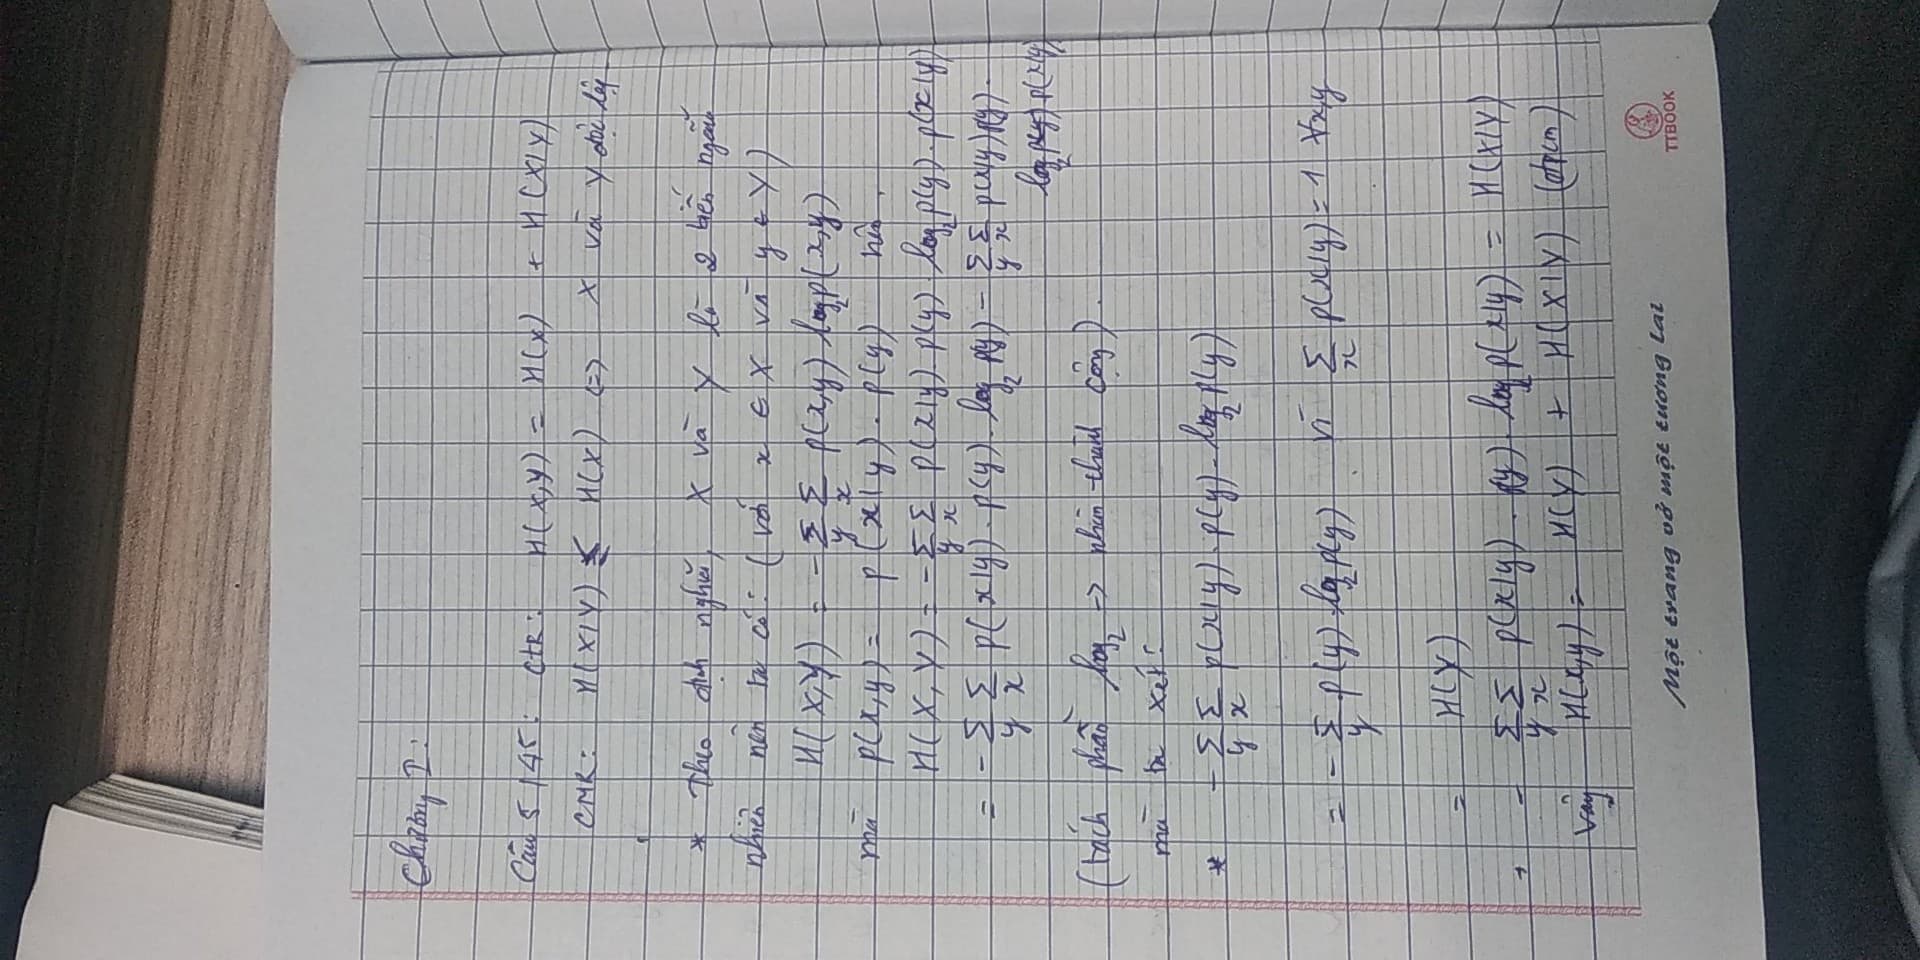 Chương I:
Câu 5 / 45: CTR: H(X,Y) = H(X) + H(X|Y)
CMR: H(X|Y) ≤ H(X) <=> X và Y độc lập
* Theo định nghĩa, X và Y là 2 biến ngẫu
nhiên nên ta có: (với x ∈ X và y ∈ Y)
H(X,Y) = - Σ_y Σ_x p(x,y) log₂p(x,y)
mà p(x,y) = p(x|y) . p(y) nên:
H(X,Y) = - Σ_y Σ_x p(x|y) . p(y) . log₂ p(y) . p(x|y)
= - Σ_y Σ_x p(x|y) . p(y) . log₂ p(y) - Σ_y Σ_x p(x|y) p(y) .
log₂ p(x|y)
(tách phần log₂ -> nhân thành cộng) .
mà ta xét:
* - Σ_y Σ_x p(x|y) . p(y) . log₂ p(y)
= - Σ_y p(y) . log₂ p(y) vì Σ_x p(x|y) = 1 ∀x,y
= H(Y)
+ - Σ_y Σ_x p(x|y) . p(y) . log₂ p(x|y) = H(X|Y)
Vậy H(X,Y) = H(Y) + H(X|Y) (đpcm)
Một trang vở một tương lai
TTBOOK